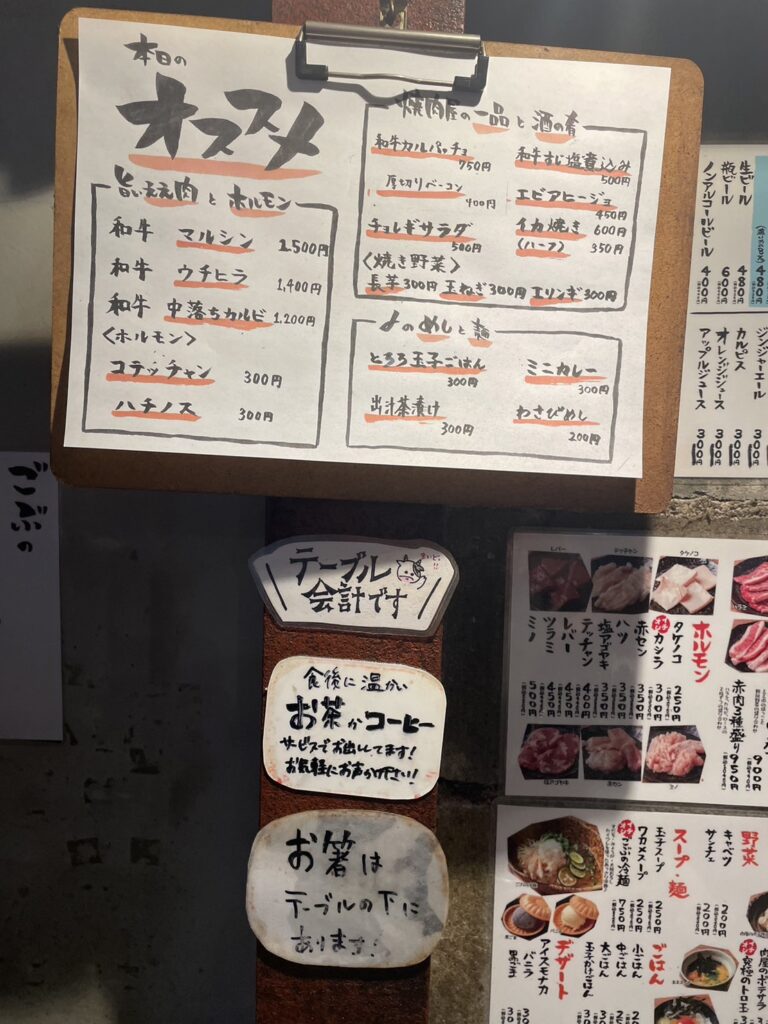 本日の
オススメ
旨いええ肉 と ホルモン
和牛 マルシン 1,500円
和牛 ウチヒラ 1,400円
和牛 中落ちカルビ 1,200円
<ホルモン>
コテッチャン 300円
ハチノス 300円
焼肉屋の一品と酒の肴
和牛カルパッチョ 750円
和牛すじ塩煮込み 500円
厚切りベーコン 400円
エビアヒージョ 450円
チョレギサラダ 500円
イカ焼き 600円
(ハーフ) 350円
<焼き野菜>
長芋300円 玉ねぎ300円 エリンギ300円
〆のめしと麺
とろろ玉子ごはん 300円
ミニカレー 300円
出汁茶漬け 300円
わさびめし 200円
生ビール 480円
瓶ビール 600円
ノンアルコールビール 400円
ジンジャーエール 300円
カルピス 300円
オレンジジュース 300円
アップルジュース 300円
ごぶの
テーブル
会計です
食後に温かい
お茶かコーヒー
サービスでお出ししてます!
お気軽にお声かけ下さい!
お箸は
テーブルの下に
あります!
レバー
テッチャン
タケノコ
ハラミ
ホルモン
タケノコ 250円
カシラ 300円
赤セン 350円
ハツ 350円
塩アゴヤキ 350円
テッチャン 450円
レバー 450円
ツラミ 450円
ミノ 500円
900円
赤肉3種盛り 950円
塩アゴヤキ
赤セン
ミノ
野菜
キャベツ 200円
サンチェ 200円
スープ・麺
玉子スープ 250円
ワカメスープ 250円
ごぶの冷麺 750円
肉屋のポテサラ
究極のトロ玉
ごはん
小ごはん
中ごはん
大ごはん
玉子かけごはん
デザート
アイスモナカ
バニラ
黒ごま